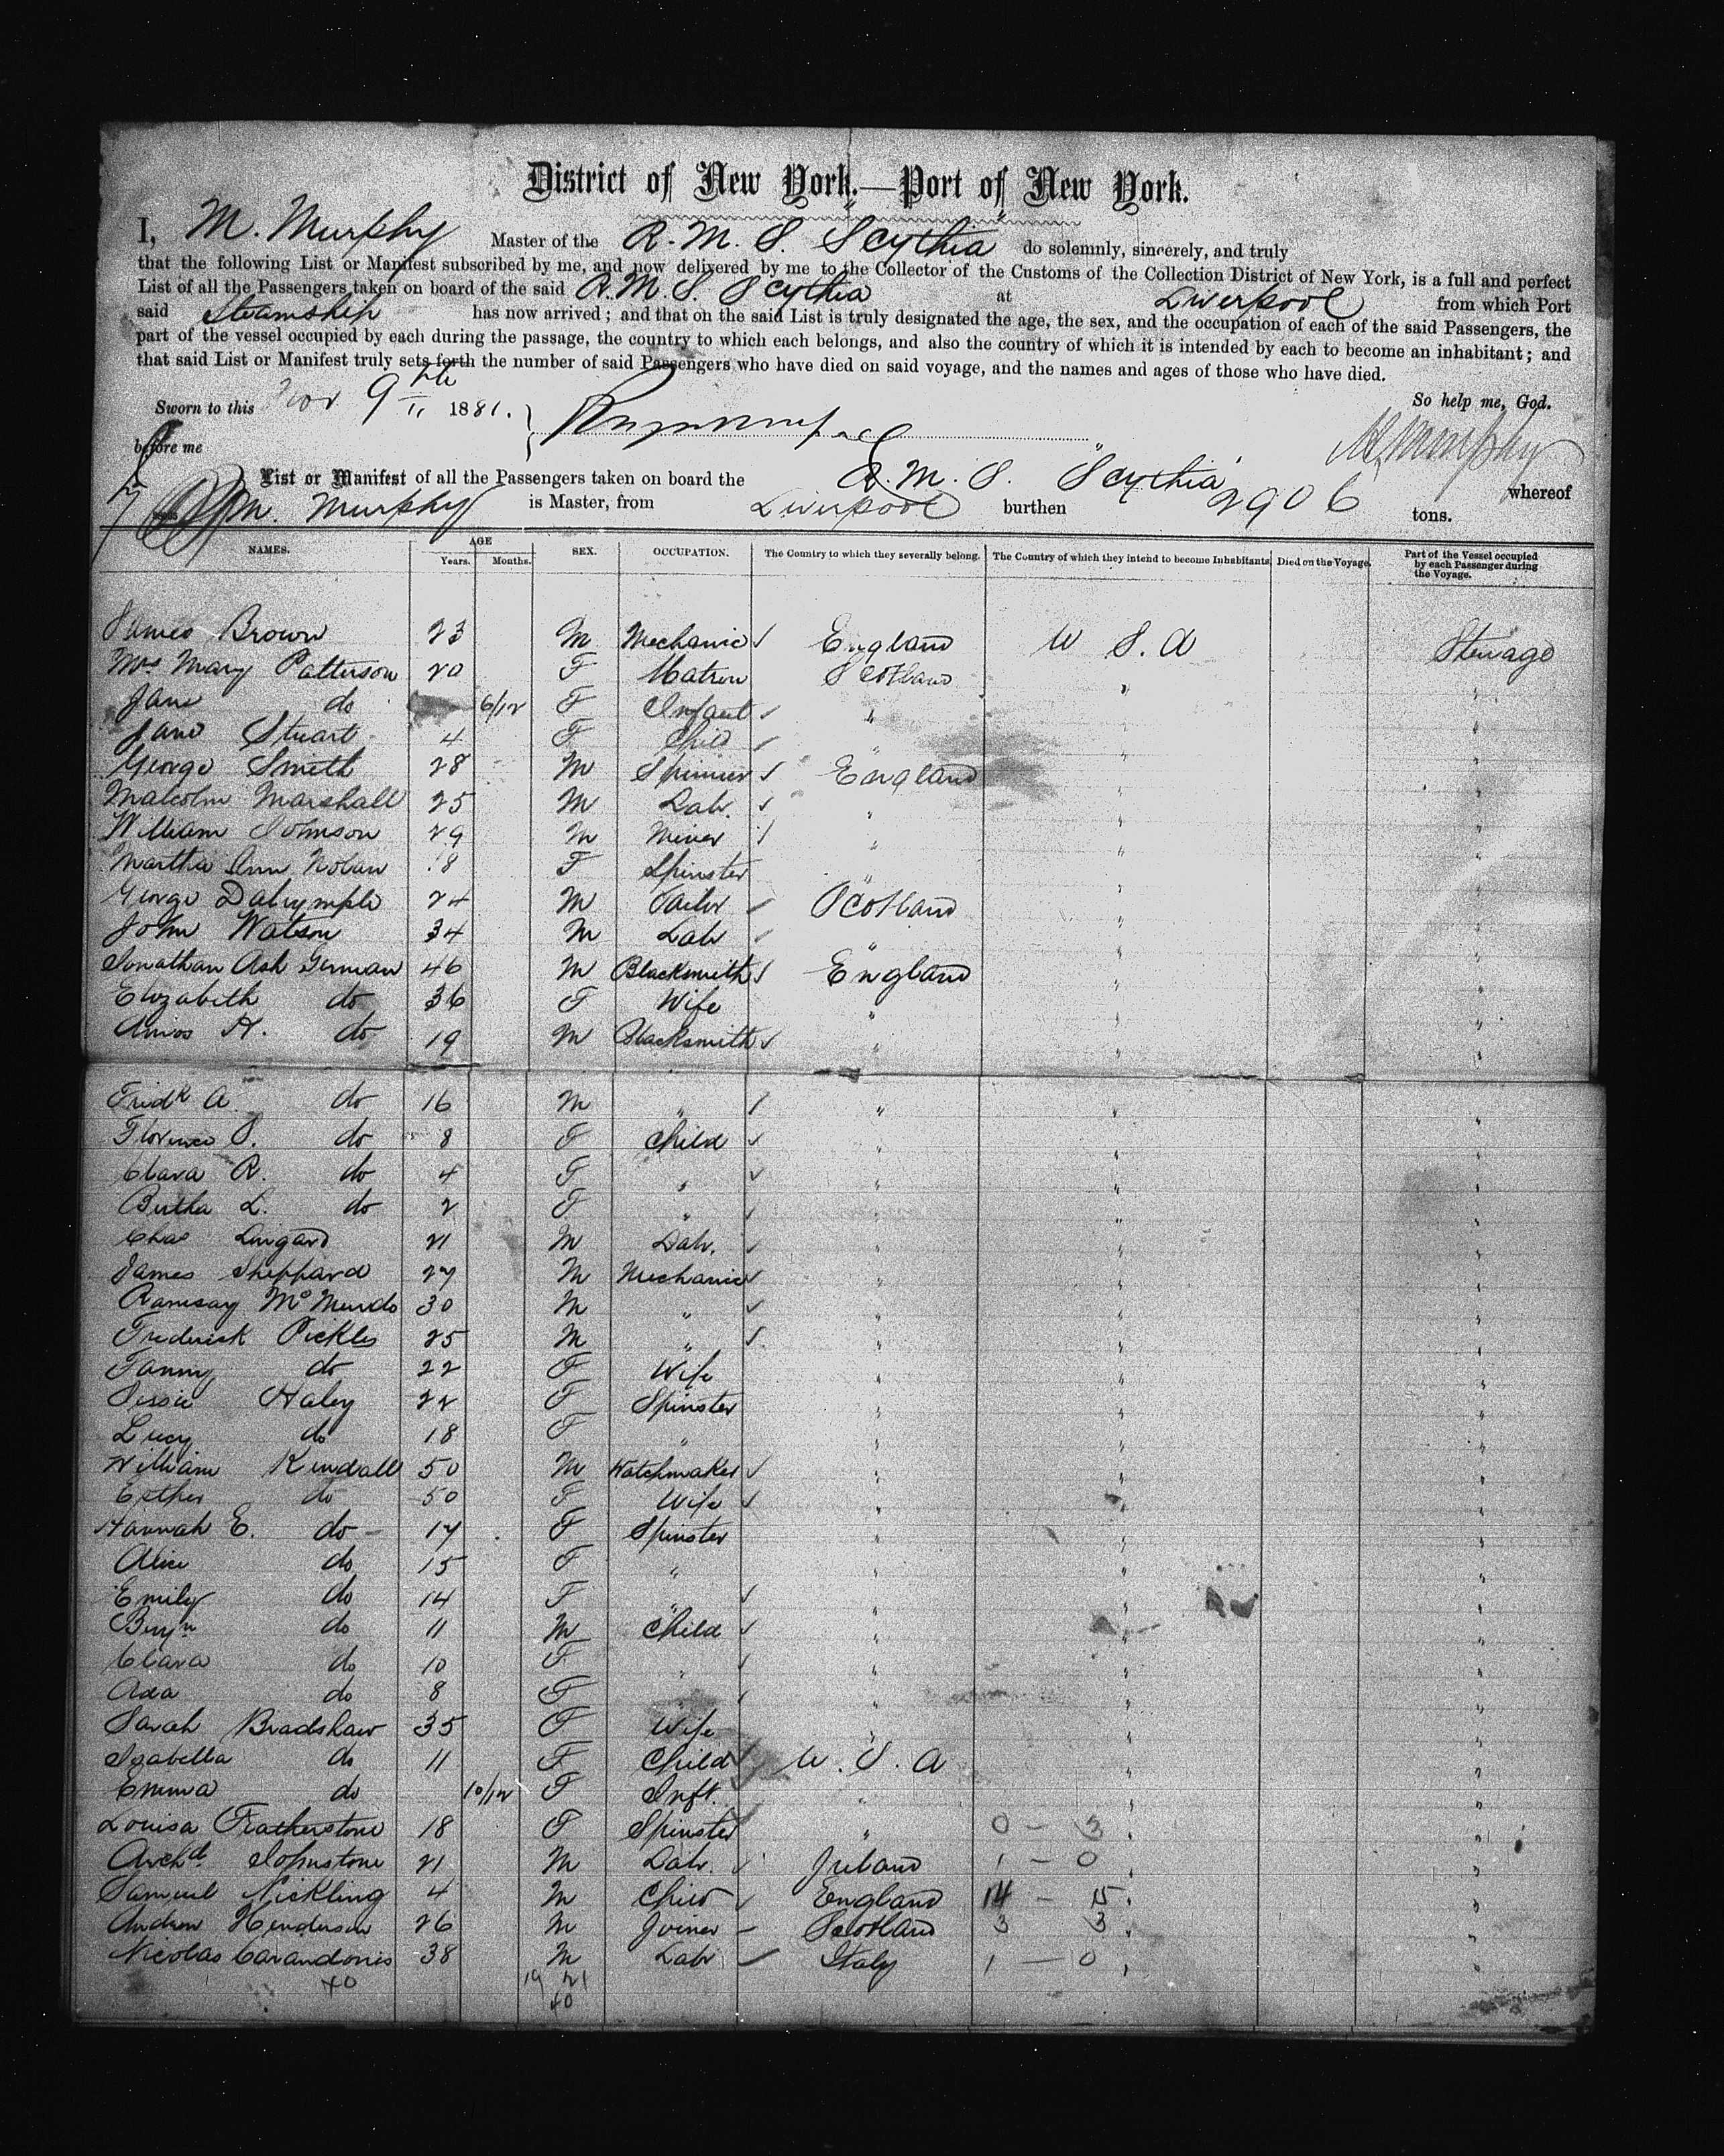 District of New York.—Port of New York.
I, M. Murphy Master of the R.M.S. "Scythia" do solemnly, sincerely, and truly
that the following List or Manifest subscribed by me, and now delivered by me to the Collector of the Customs of the Collection District of New York, is a full and perfect
List of all the Passengers taken on board of the said R.M.S. Scythia at Liverpool from which Port
said Steamship has now arrived; and that on the said List is truly designated the age, the sex, and the occupation of each of the said Passengers, the
part of the vessel occupied by each during the passage, the country to which each belongs, and also the country of which it is intended by each to become an inhabitant; and
that said List or Manifest truly sets forth the number of said Passengers who have died on said voyage, and the names and ages of those who have died.
Sworn to this Nov 9th 1881. So help me, God.
before me M Murphy
List or Manifest of all the Passengers taken on board the R.M.S. "Scythia" whereof
M. Murphy is Master, from Liverpool burthen 2906 tons.
NAMES. AGE Years. Months. SEX. OCCUPATION. The Country to which they severally belong. The Country of which they intend to become Inhabitants. Died on the Voyage. Part of the Vessel occupied by each Passenger during the Voyage.
James Brown 23 M Mechanic England U S. A Steerage
Mrs Mary Patterson 20 F Matron Scotland " "
Jane do 6/12 F Infant " " "
Jane Stuart 4 F Child " " "
George Smith 28 M Spinner England " "
Malcolm Marshall 25 M Labr. " " "
William Johnson 29 M Miner " " "
Martha Ann Nolan 18 F Spinster " " "
George Dalrymple 24 M Tailor Scotland " "
John Watson 34 M Labr " " "
Jonathan Ash German 46 M Blacksmith England " "
Elizabeth do 36 F Wife " " "
Amos H. do 19 M Blacksmith " " "
Fredk A. do 16 M " " " "
Florence S. do 8 F Child " " "
Clara R. do 4 F " " " "
Bertha L. do 2 F " " " "
Chas Lingard 21 M Labr. " " "
James Sheppard 27 M Mechanic " " "
Ramsay McMurdo 30 M " " " "
Frederick Pickles 25 M " " " "
Fanny do 22 F Wife " " "
Jessie Haley 22 F Spinster " " "
Lucy do 18 F " " " "
William Kendall 50 M Watchmaker " " "
Esther do 50 F Wife " " "
Hannah E. do 17 F Spinster " " "
Alice do 15 F " " " "
Emily do 14 F " " " "
Benjn do 11 M Child " " "
Clara do 10 F " " " "
Ada do 8 F " " " "
Sarah Bradshaw 35 F Wife " " "
Isabella do 11 F Child U. S. A " "
Emma do 10/12 F Inft. " " "
Louisa Featherstone 18 F Spinster " 0 - 3 " "
Archd Johnstone 21 M Labr. Ireland 1 - 0 " "
Samuel Nickling 4 M Child England 14 - 15 " "
Andrew Henderson 26 M Joiner Scotland 3 3 " "
Nicolas Carandonis 38 M Labr Italy 1 - 0 " "
40 19 21
40